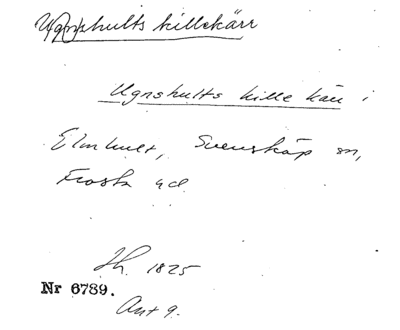 Ugnshults killekärr
Ugnshults kille kärr i
Elmhult, Svensköp sn,
Frosta hd
Sk. 1825
Nr 6789.
Ant 9.